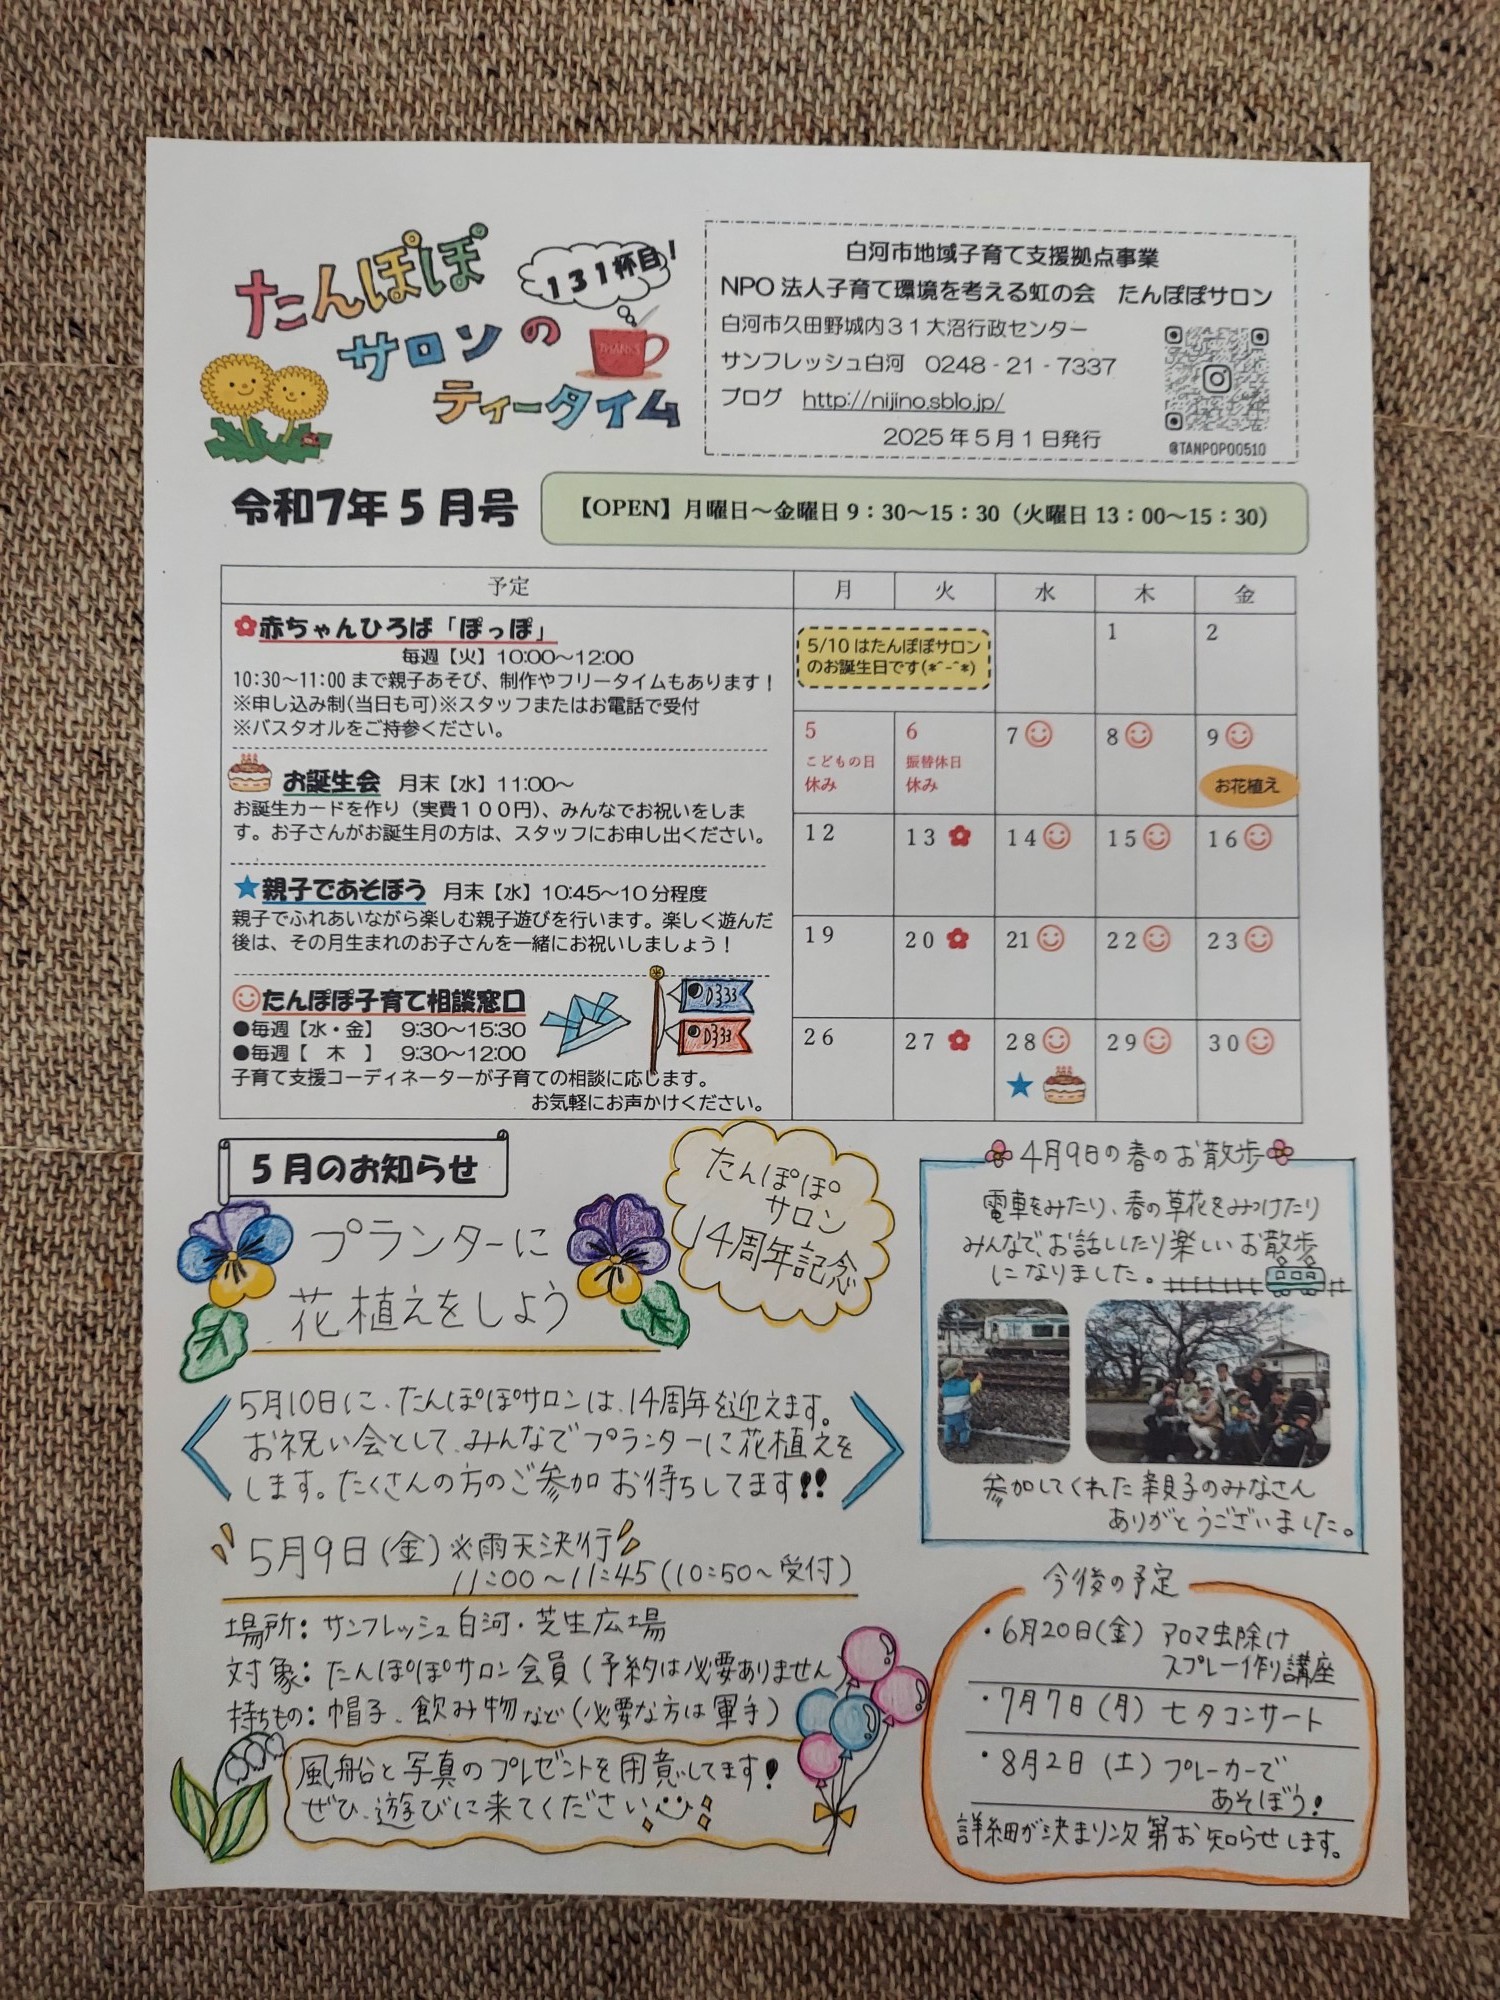 たんぽぽ
サロンの
ティータイム
131杯目!
THANKS
白河市地域子育て支援拠点事業
NPO法人子育て環境を考える虹の会　たんぽぽサロン
白河市久田野城内31大沼行政センター
サンフレッシュ白河　0248-21-7337
ブログ　http://nijino.sblo.jp/
2025年5月1日発行
@TANPOPO0510
令和7年5月号
【OPEN】月曜日～金曜日9：30～15：30（火曜日13：00～15：30）
予定
月 火 水 木 金
赤ちゃんひろば「ぽっぽ」
毎週【火】10:00～12:00
10:30～11:00まで親子あそび、制作やフリータイムもあります！
※申し込み制(当日も可)※スタッフまたはお電話で受付
※バスタオルをご持参ください。
お誕生会　月末【水】11:00～
お誕生カードを作り（実費100円）、みんなでお祝いをしま
す。お子さんがお誕生月の方は、スタッフにお申し出ください。
★親子であそぼう　月末【水】10:45～10分程度
親子でふれあいながら楽しむ親子遊びを行います。楽しく遊んだ
後は、その月生まれのお子さんを一緒にお祝いしましょう！
たんぽぽ子育て相談窓口
●毎週【水・金】　9:30～15:30
●毎週【　木　】　9:30～12:00
子育て支援コーディネーターが子育ての相談に応じます。
お気軽にお声かけください。
5/10はたんぽぽサロン
のお誕生日です(*^-^*)
1 2
5 6 7 8 9
こどもの日 振替休日
休み 休み お花植え
12 13 14 15 16
19 20 21 22 23
26 27 28 29 30
★
5月のお知らせ
プランターに
花植えをしよう
たんぽぽ
サロン
14周年記念
5月10日に、たんぽぽサロンは、14周年を迎えます。
お祝い会として、みんなでプランターに花植えを
します。たくさんの方のご参加お待ちしてます!!
5月9日(金)※雨天決行
11:00～11:45(10:50～受付)
場所：サンフレッシュ白河・芝生広場
対象：たんぽぽサロン会員(予約は必要ありません)
持ちもの：帽子、飲み物など(必要な方は軍手)
風船と写真のプレゼントを用意してます！
ぜひ、遊びに来てください
4月9日の春のお散歩
電車をみたり、春の草花をみつけたり
みんなで、お話ししたり楽しいお散歩
になりました。
参加してくれた親子のみなさん
ありがとうございました。
今後の予定
・6月20日(金) アロマ虫除け
スプレー作り講座
・7月7日(月) 七夕コンサート
・8月2日(土) プレーカーで
あそぼう!
詳細が決まり次第お知らせします。